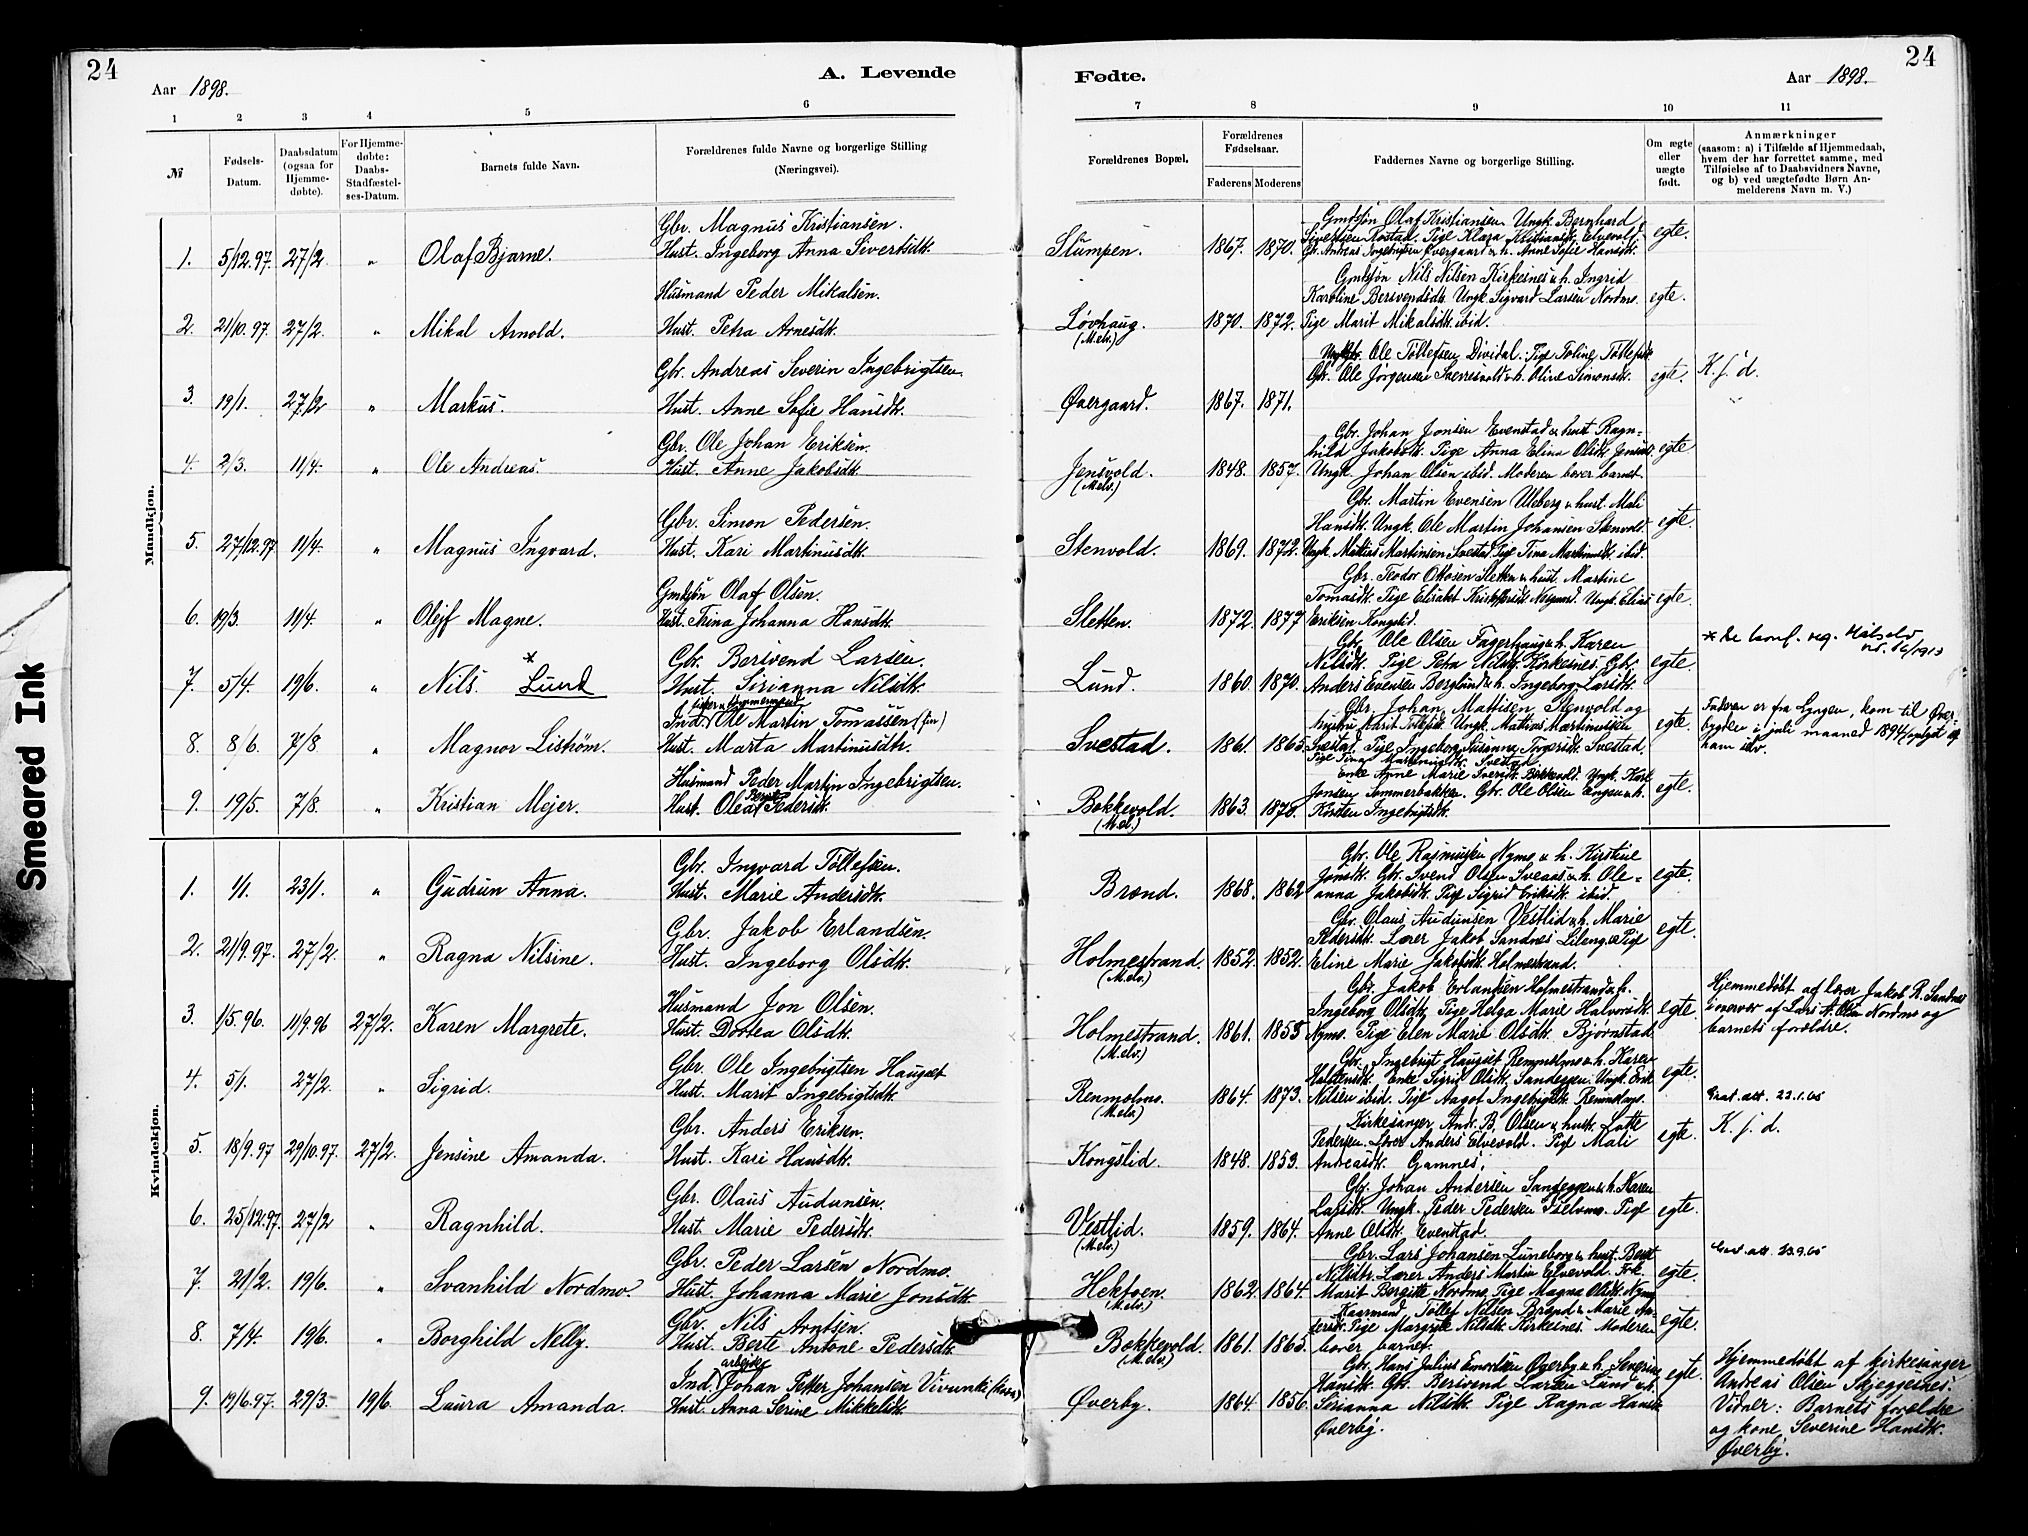 24
Aar 1898.
A. Levende
1 2 3 4 5 6
№
Fødsels-Datum.
Daabsdatum (ogsaa for Hjemmedøbte).
For Hjemmedøbte: Daabs-Stadfæstelses-Datum.
Barnets fulde Navn.
Forældrenes fulde Navne og borgerlige Stilling
(Næringsvei).
Mandkjøn.
Gbr. Magnus Kristiansen.
1. 5/12.97. 27/2. " Olaf Bjarne. Hust. Ingeborg Anna Sivertsdtr.
Husmand Peder Mikalsen.
2. 21/10.97. 27/2. " Mikal Arnold. Hust. Petra Arnesdtr.
Gbr. Andreas Severin Ingebrigtsen.
3. 19/1. 27/2 " Markus. Hust. Anne Sofie Hansdtr.
Gbr. Ole Johan Eriksen.
4. 2/3. 11/4. " Ole Andreas. Hust. Anne Jakobsdtr.
Gbr. Simon Pedersen.
5. 27/12.97 11/4. " Magnus Ingvard. Hust. Kari Martinusdtr.
Gmdsøn Olaf Olsen.
6. 19/3. 11/4. " Olejf Magne. Hust. Trina Johanna Hansdtr.
Gbr. Bersvend Larsen.
7. 5/4. 19/6. " Nils. * Lund Hust. Sirianna Nilsdtr.
Ind. Ole Martin Tomassen (fin)
8. 8/6. 7/8 " Magnor Liström. Hust. Marta Martinusdtr.
Husmand Peder Martin Ingebrigtsen.
9. 19/5. 7/8. " Kristian Mejer. Hust. Olea Berit Pedersdtr.
Kvindekjøn.
Gbr. Ingvard Tollefsen.
1. 1/1. 23/1. " Gudrun Anna. Hust. Marie Andersdtr.
Gbr. Jakob Erlandsen.
2. 21/9.97. 27/2. " Ragna Nilsine. Hust. Ingeborg Olsdtr.
Husmand Jon Olsen.
3. 1/5.96. 11/9.96 27/2. Karen Margrete. Hust. Dortea Olsdtr.
Gbr. Ole Ingebrigtsen Hauget
4. 5/1. 27/2. " Sigrid. Hust. Marit Ingebrigtsdtr.
Gbr. Anders Eriksen.
5. 18/9.97 29/10.97. 27/2. Jensine Amanda. Hust. Kari Hansdtr.
Gbr. Olaus Audunsen.
6. 25/12.97. 27/2 " Ragnhild. Hust. Marie Pedersdtr.
Gbr. Peder Larsen Nordmo.
7. 21/2. 19/6. " Svanhild Nordmo. Hust. Johanna Marie Jonsdtr.
Gbr. Nils Arntsen.
8. 7/4. 19/6. " Borghild Nelly. Hust. Berit Antone Pedersdtr.
Ind. arbejder Johan Petter Johansen
9. 19/6.97. 29/3. 19/6. Laura Amanda. Hust. Anna Serine Mikkelsdtr.
24
Fødte.
Aar 1898.
7 8 9 10 11
Forældrenes Bopæl.
Forældrenes Fødselsaar.
Faderens Moderens
Faddernes Navne og borgerlige Stilling.
Om ægte eller uægte født.
Anmærkninger
(saasom: a) i Tilfælde af Hjemmedaab, hvem der har forrettet samme, med Tilføielse af to Daabsvidners Navne, og b) ved uægtefødte Børn Anmelderens Navn m. V.)
Gmdsøn Olaf Kristiansen. Ungk. Bernhard
Sivertsen Rostad. Pige Klara Kristiansdtr. Elvevold. egte.
Slumpen. 1867. 1870. Gbr. Andreas Ingebrigtsen Øvergaard & h. Anne Sofie Hansdtr.
Gmdsøn Nils Nilsen Kirkesnes & h. Ingrid
Karoline Bersvendsdtr. Ungk. Sigvard Larsen Nordmo. egte.
Løvhaug. (M.elv.) 1870. 1872. Pige Marit Mikalsdtr. ibid.
Ole Tollefsen Dividal. Pige Toline Tollefsdtr.
Gbr. Ole Jørgensen & h. Oline Simonsdtr. egte. K.f.d.
Øvergaard. 1867. 1871.
Gbr. Johan Jonsen Evenstad & hust. Ragn-
hild Jakobsdtr. Pige Anna Elina Olsdtr. egte
Jensvold. (M.elv.) 1848. 1857. Ungk. Johan Olsen ibid. Moderen bærer barnet.
Gbr. Martin Evensen Uleberg & hust. Mali
Hansdtr. Ungk. Ole Martin Johansen Stenvold. egte.
Stenvold. 1869. 1872. Ungk. Matias Martinsen Svestad. Pige Tina Martinusdtr. ibid.
Gbr. Teodor Ottosen Sletten & hust. Martine
Tomasdtr. Pige Elisabet Kristoffersdtr. Ungk. Elias egte.
Sletten. 1872. 1877 Eriksen Kongslid.
Gbr. Ole Olsen Fagerhaug & h. Karen
Nilsdtr. Pige Petra Nilsdtr. Kirkesnes. Gbr. egte.
Lund. 1860. 1870. Anders Evensen Berglund & h. Ingeborg Larsdtr.
Gbr. Johan Mattisen Stenvold og
Ungk. Mathias Martinussen egte.
Svestad. 1861. 1865. Svestad. Pige Ingeborg Susanna Svestad.
Pige Tina Martinusdtr. Svestad
Faderen er fra Lyngen, kom til Øver-
bygden i juli maaned 1894
Enke Anne Marie Iversdtr. Ungk. Karl
Jonsen Sommerbakken. Gbr. Ole Olsen Engen & h. egte.
Bokkevold. (M.elv.) 1863. 1878. Kirsten Ingebrigtsdtr.
Gbr. Ole Rasmussen Nymo & h. Kirstine
Jonsdtr. Gbr. Svend Olsen Sveaas & h. Ole- egte.
Brænd. 1868. 1862 anna Jakobsdtr. Pige Sigrid Eriksdtr. ibid.
Gbr. Olaus Audunsen Vestlid & h. Marie
Pedersdtr. Lærer Jakob Sandnes Pige egte.
Holmestrand. (M.elv.) 1852. 1852. Eline Marie Jakobsdtr. Holmestrand.
Gbr. Jakob Erlandsen Holmestrand & h.
Ingeborg Olsdtr. Pige Helga Marie Halvorsdtr. egte
Holmestrand. (M.elv.) 1861. 1855 Nymo. Pige Elen Marie Olsdtr. Bjørnstad
Hjemmedøbt af lærer Jakob R. Sandnes
i nærvær af Lars A. Olsen Nordmo og
barnets forældre.
Gbr. Ingebrigt Hauget Renmolmo & h. Karen
Halstensdtr. Enke Sigrid Olsdtr. Sandeggen. Ungk. Erik egte.
Renmolmo. (M.elv.) 1864. 1873. Nilsen ibid. Pige Aagot Ingebrigtsdtr. 22.1.05
Kirkesanger And. B. Olsen & hust. Lotte
Pedersen. Lærer Anders Elvevold. Pige Mali egte. K.f.d.
Kongslid. 1848. 1853. Andreasdtr. Gamnes.
Gbr. Johan Andersen Sandeggen & h. Karen
Larsdtr. Ungk. Peder Pedersen Pige egte.
Vestlid. (M.elv.) 1859. 1864. Anne Olsdtr. Evenstad.
Gbr. Lars Johansen Luneborg & hust. Berit
Nilsdtr. Lærer Anders Martin Elvevold. Frk. egte. 23.9.05
Hektoen. (M.elv.) 1862. 1864. Marit Bergitte Nordmo. Pige Magna Olsdtr. Nymo
Kaarmand Tollef Nilsen Brænd & Marie An-
dersdtr. Pige Margrete Nilsdtr. Kirkesnes. Moderen egte.
Bokkevold. (M.elv.) 1861. 1865. bærer barnet.
Gbr. Hans Julius Overby & h. Severine
Hansdtr. Gbr. Bersvend Larsen Lund & h. egte.
Øverby. 1864. 1856. Sirianna Nilsdtr. Pige Ragna Hansdtr.
Øverby.
Hjemmedøbt af kirkesanger
Andreas Olsen Skjeggesnes.
Vidner: Barnets forældre
og kone Severine Hansdtr.
Øverby.
Smeared Ink